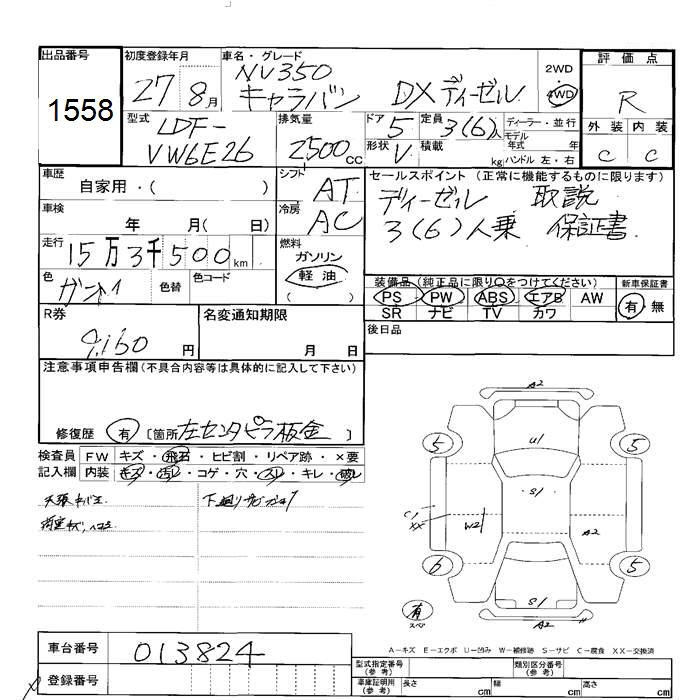 出品番号
1558
初度登録年月
27 8月
車名・グレード
NV350
キャラバン DX ディーゼル
2WD
4WD
評価点
R
外装 内装
C C
型式
LDF-
VW6E26
排気量
2500 CC
ドア 5
形状 V
定員 3(6)人
積載 kg
ディーラー・並行
モデル
年式 年
ハンドル 左・右
車歴
自家用・( )
シフト AT
冷房 AC
セールスポイント (正常に機能するものに限ります)
ディーゼル 取説
3(6)人乗 保証書
車検
年 月( 日)
走行
15万3千500km
燃料
ガソリン
軽油
( )
色
色替
色コード
装備品(純正品に限り○をつけてください)
PS PW ABS エアB AW
SR ナビ TV カワ
新車保証書
有 無
R券
9,160 円
名変通知期限
月 日
後日品
注意事項申告欄(不具合内容等は具体的に記入して下さい)
修復歴 有 [箇所 左センタピラ板金 ]
検査員
記入欄
FW キズ・飛石・ヒビ割・リペア跡・×要
内装 キズ・汚レ・コゲ・穴・スレ・キレ・破レ
A2
U1
5 5
S1
C1
XX
W2
A2
6 5
S1
A2
有
スペア
A-キズ E-エクボ U-凹み W-補修跡 S-サビ C-腐食 XX-交換済
車台番号
013824
登録番号
型式指定番号
(参考)
類別区分番号
(参考)
車庫証明用
(参考)
長さ cm
幅 cm
高さ cm